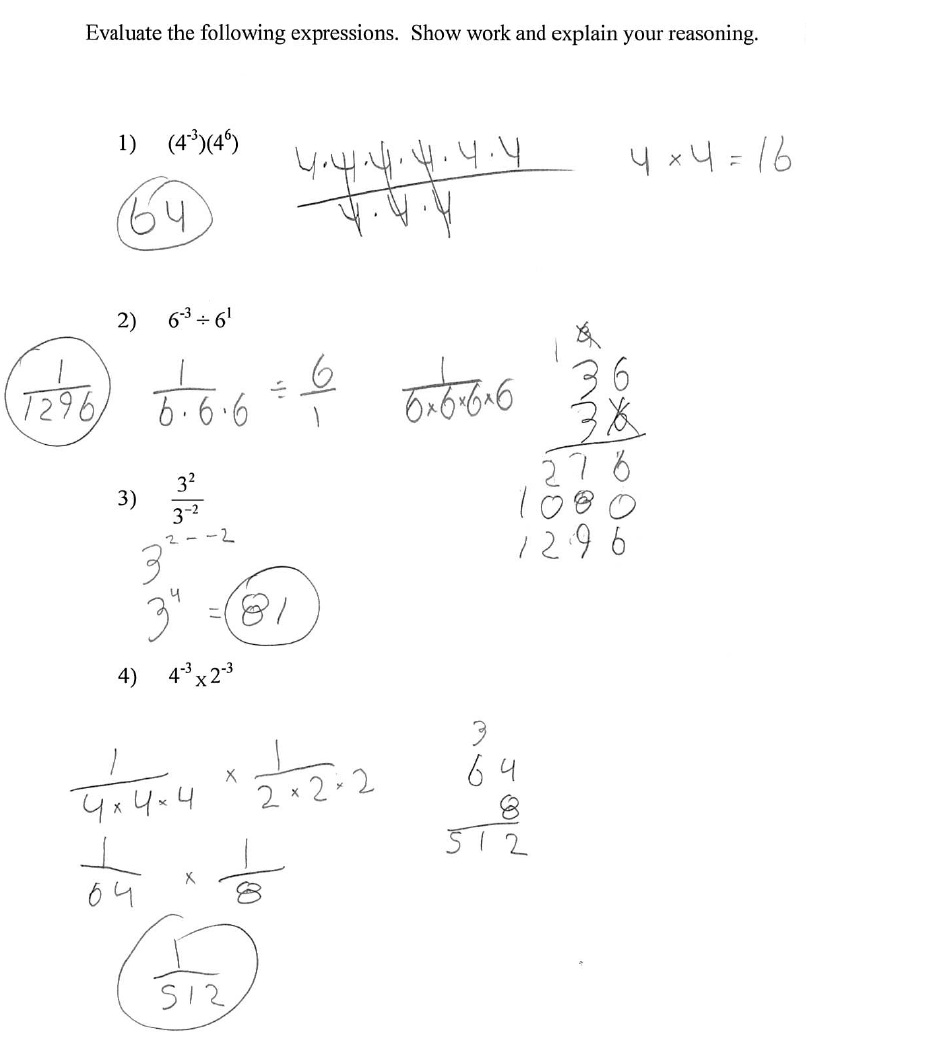 Evaluate the following expressions. Show work and explain your reasoning.
1) (4⁻³)(4⁶)
4·4·4·4·4·4
4·4·4
4 × 4 = 16
64
2) 6⁻³ ÷ 6¹
1/1296
1/6·6·6 ÷ 6/1
1/6×6×6×6
1
36
36
276
1080
1296
3) 3²/3⁻²
3²⁻⁻²
3⁴ = 81
4) 4⁻³ x 2⁻³
1/4×4×4 × 1/2×2×2
3
64
8
512
1/64 × 1/8
1/512